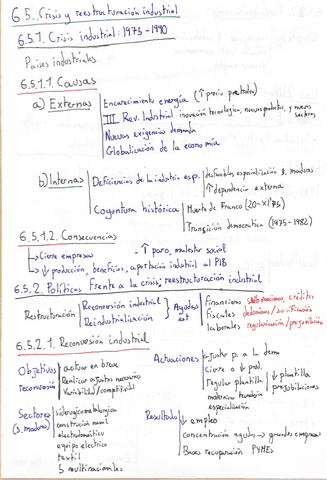 6.5. Crisis y reestructuración industrial
6.5.1. Crisis industrial: 1975 - 1990
Países industriales
6.5.1.1. Causas
a) Externas
Encarecimiento energía (↑ precio petróleo)
III Rev. Industrial innovación tecnológica, nuevos productos, y nuevos sectores
Nuevas exigencias demanda
Globalización de la economía
b) Internas
Deficiencias de la industria esp.
desfavorable especialización s. maduros
↑ dependencia externa
Coyuntura histórica
Muerte de Franco (20-XI-75)
Transición democrática (1975-1982)
6.5.1.2. Consecuencias
→ Cierre empresas
- ↑ paro, malestar social
→ ↓ producción, beneficios, aportación industrial al PIB
6.5.2. Políticas frente a la crisis; reestructuración industrial
Restructuración
Reconversión industrial
Reindustrialización
Ayudas est
financiera subvenciones, créditos
fiscales
laborales regularización/prejubilación
6.5.2.1. Reconversión industrial
Objetivos reconversión
activar en breve
Realizar ajustes necesarios
Viabilidad/competitividad
Actuaciones
ajuste p. a l. dema
cierre o ↓ prod.
regular plantilla
↓ plantilla
prejubilaciones
modernizar tecnología
especialización
Sectores (s. maduros)
siderometalurgica
construcción naval
electrodoméstico
equipo electrico
textil
5 multinacionales
Resultado
↓ empleo
concentración ayudas → grandes empresas
Bases recuperación PYMEs